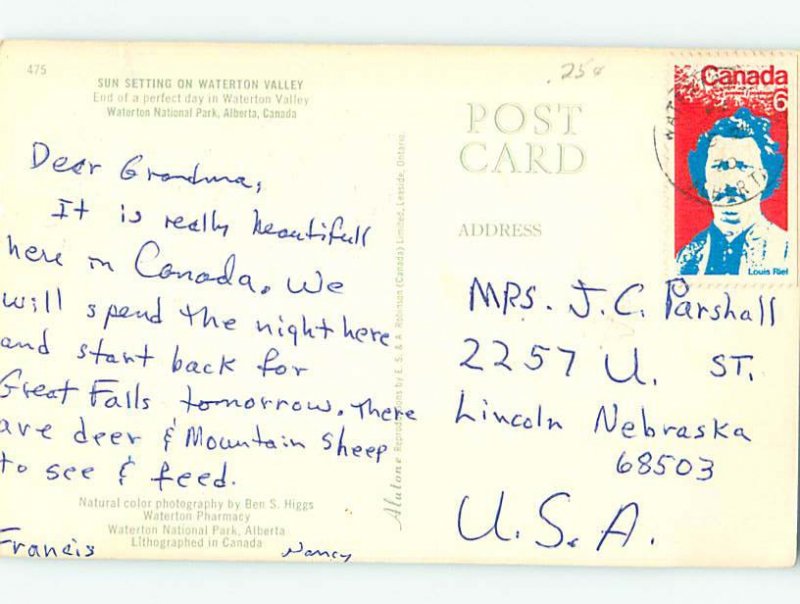 475
SUN SETTING ON WATERTON VALLEY
End of a perfect day in Waterton Valley
Waterton National Park, Alberta, Canada
Dear Grandma,
It is really beautifull
here in Canada. We
will spend the night here
and start back for
Great Falls tomorrow. There
are deer & Mountain sheep
to see & feed.
Natural color photography by Ben S. Higgs
Waterton Pharmacy
Waterton National Park, Alberta
Lithographed in Canada
Francis
Nancy
Alutone Reproductions by E. S. & A. Robinson (Canada) Limited, Leaside, Ontario.
.25¢
POST
CARD
ADDRESS
Canada
6
Louis Riel
MRS. J.C. Parshall
2257 U. ST.
Lincoln Nebraska
68503
U.S.A.